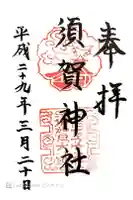 奉拝
須賀神社
平成二十九年三月二十日